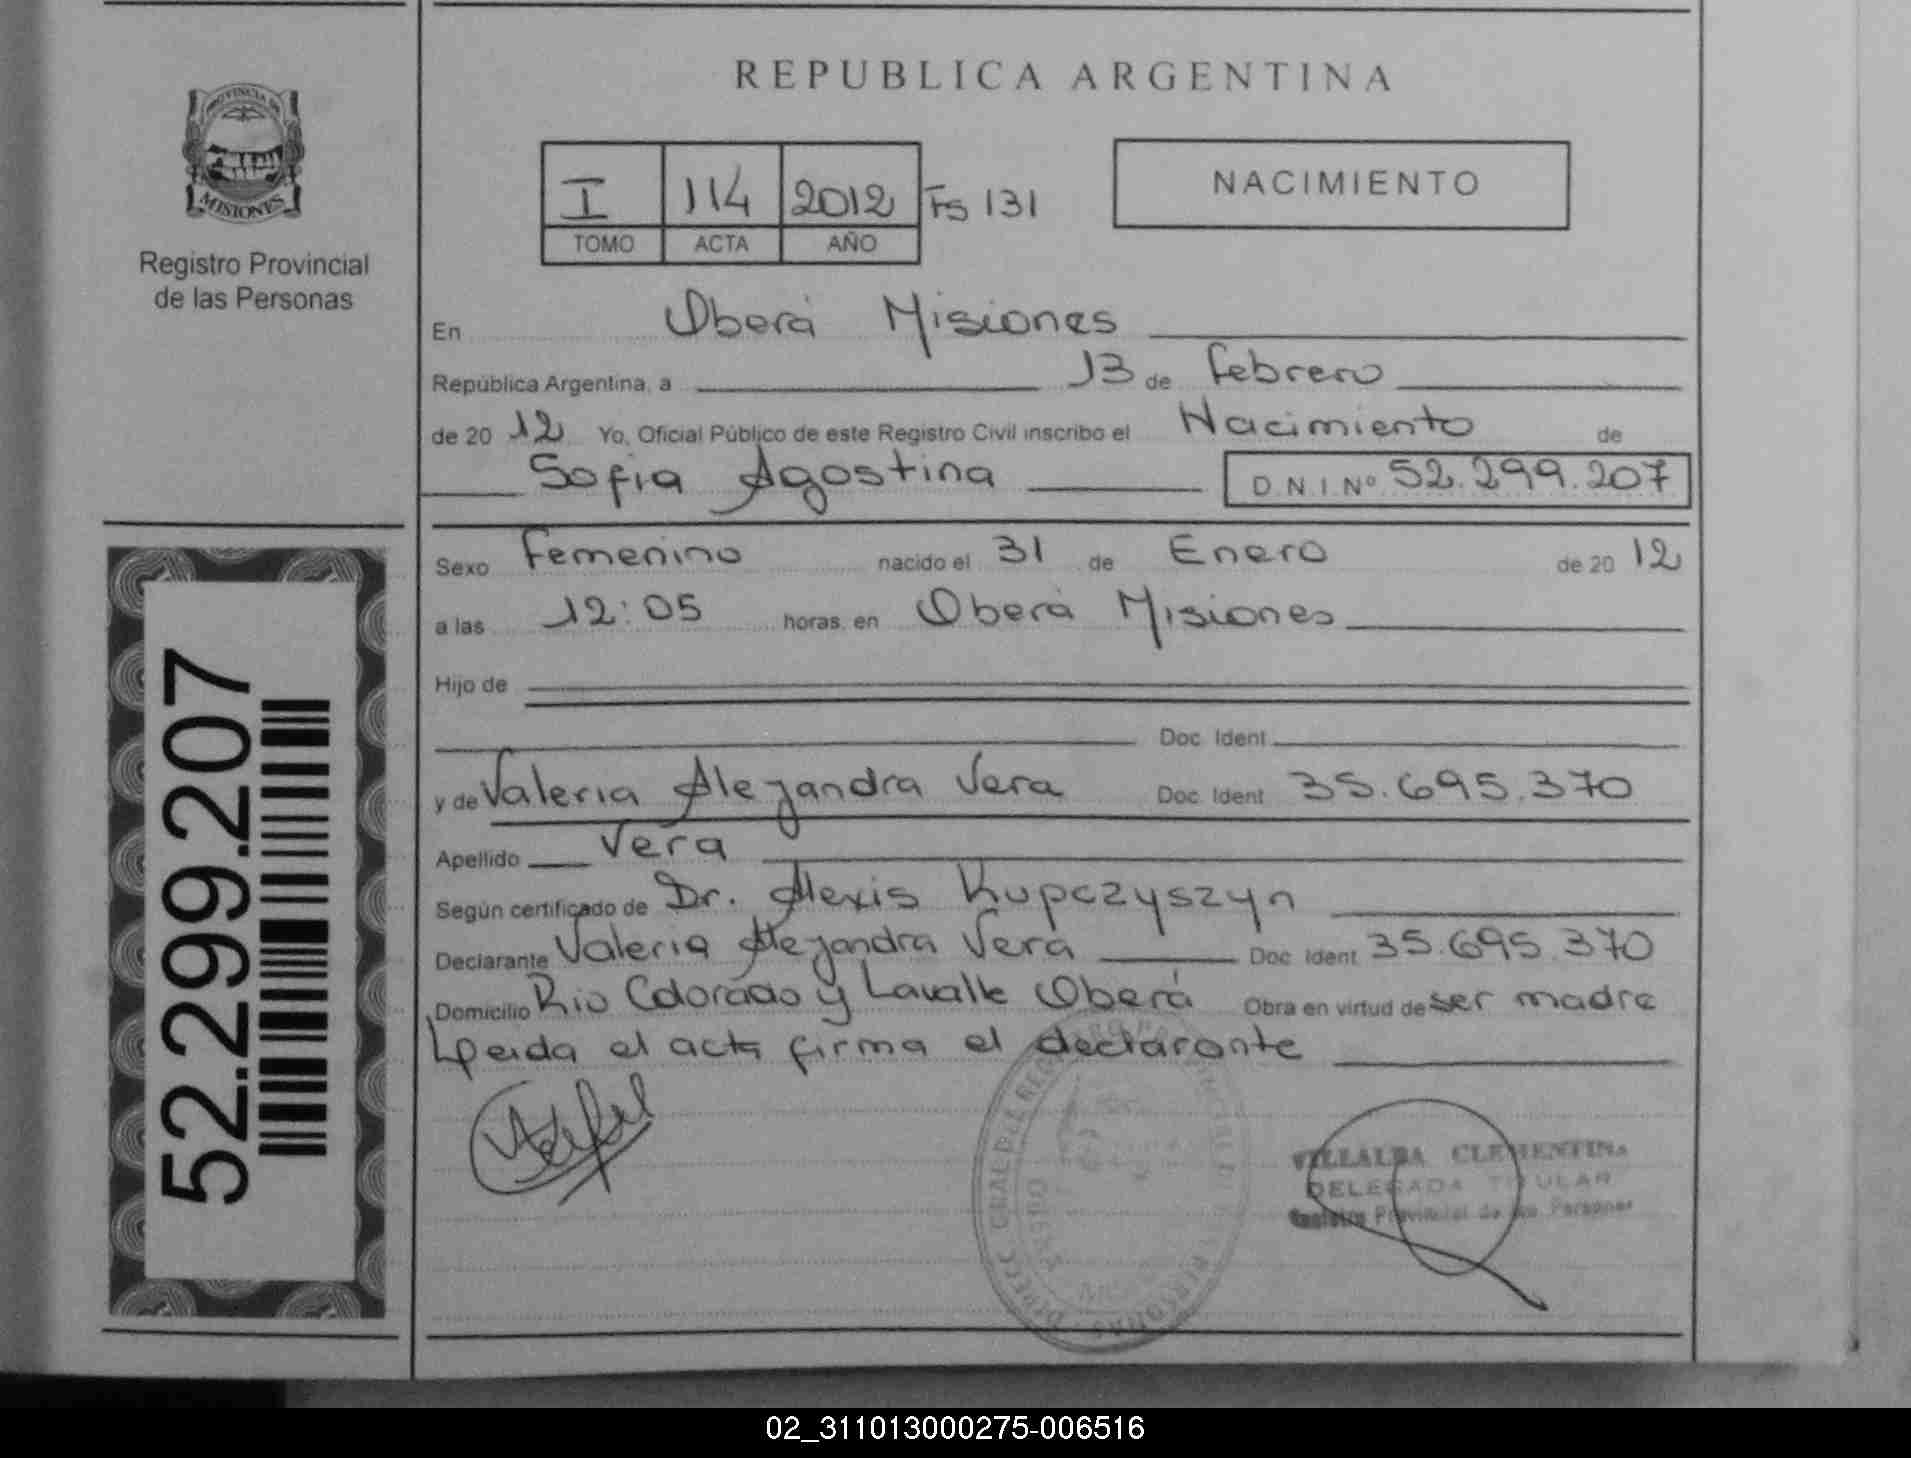 REPUBLICA ARGENTINA
PROVINCIA DE
MISIONES
Registro Provincial
de las Personas
I 114 2012 Fs 131
TOMO ACTA AÑO
NACIMIENTO
En Oberá Misiones
República Argentina, a 13 de Febrero
de 20 12 Yo, Oficial Público de este Registro Civil inscribo el Nacimiento de
Sofia Agostina D.N.I.Nº 52.299.207
Sexo Femenino nacido el 31 de Enero de 20 12
a las 12:05 horas, en Oberá Misiones
Hijo de
Doc. Ident.
y de Valeria Alejandra Vera Doc. Ident. 35.695.370
Apellido Vera
Según certificado de Dr. Alexis Kupczyszyn
Declarante Valeria Alejandra Vera Doc. Ident. 35.695.370
Domicilio Rio Colorado y Lavalle Oberá Obra en virtud de ser madre
Leida el acta firma el declarante
VILLALBA CLEMENTINA
DELEGADA TITULAR
Registro Provincial de las Personas
52.299.207
02_311013000275-006516